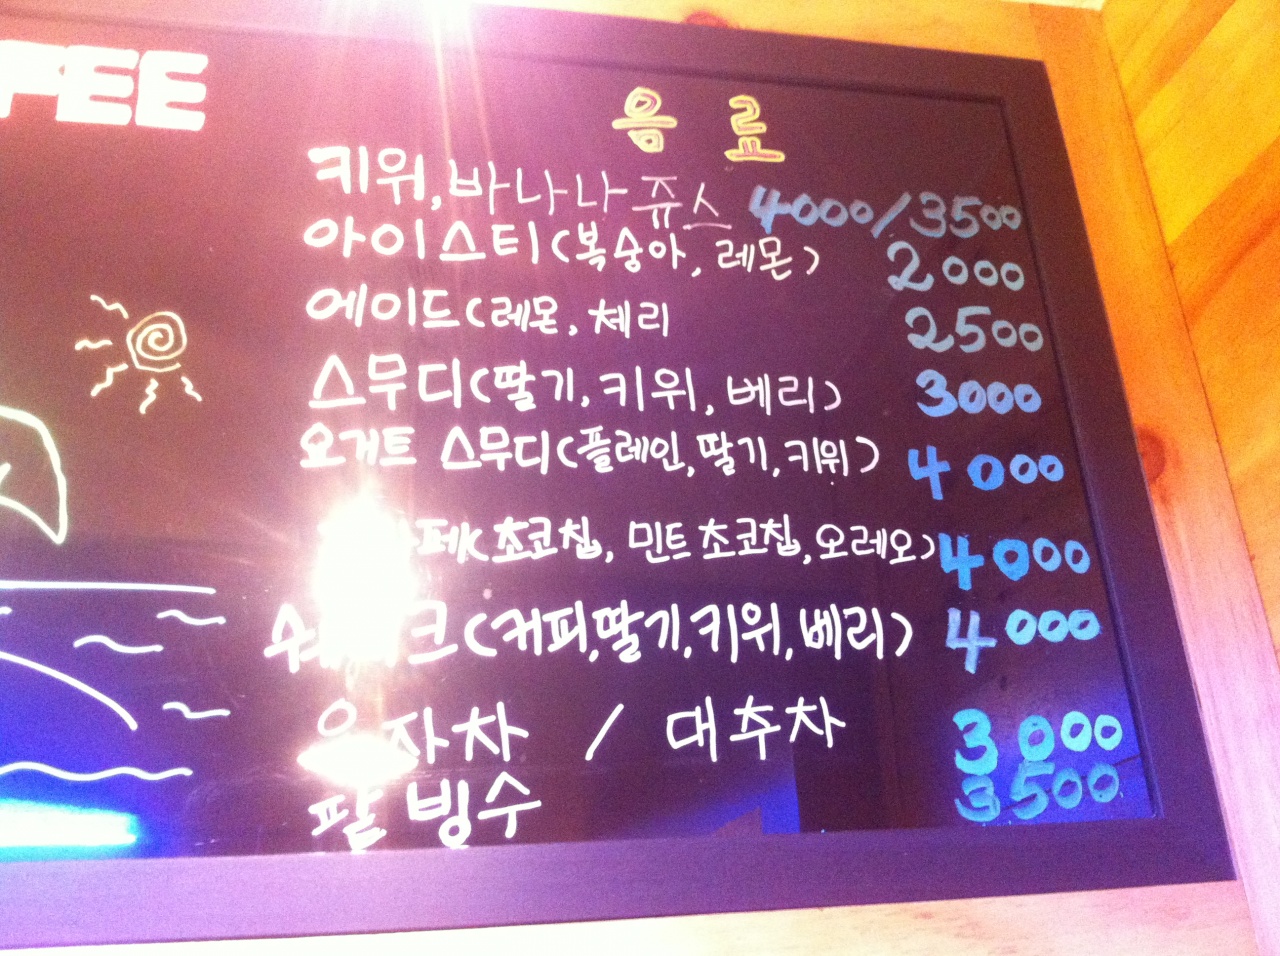 FEE
음료
키위,바나나쥬스 4000/3500
아이스티(복숭아,레몬) 2000
에이드(레몬,체리 2500
스무디(딸기,키위,베리) 3000
요거트 스무디(플레인,딸기,키위) 4000
(초코칩,민트초코칩,오레오) 4000
(커피,딸기,키위,베리) 4000
유자차 / 대추차 3000
팥빙수 3500